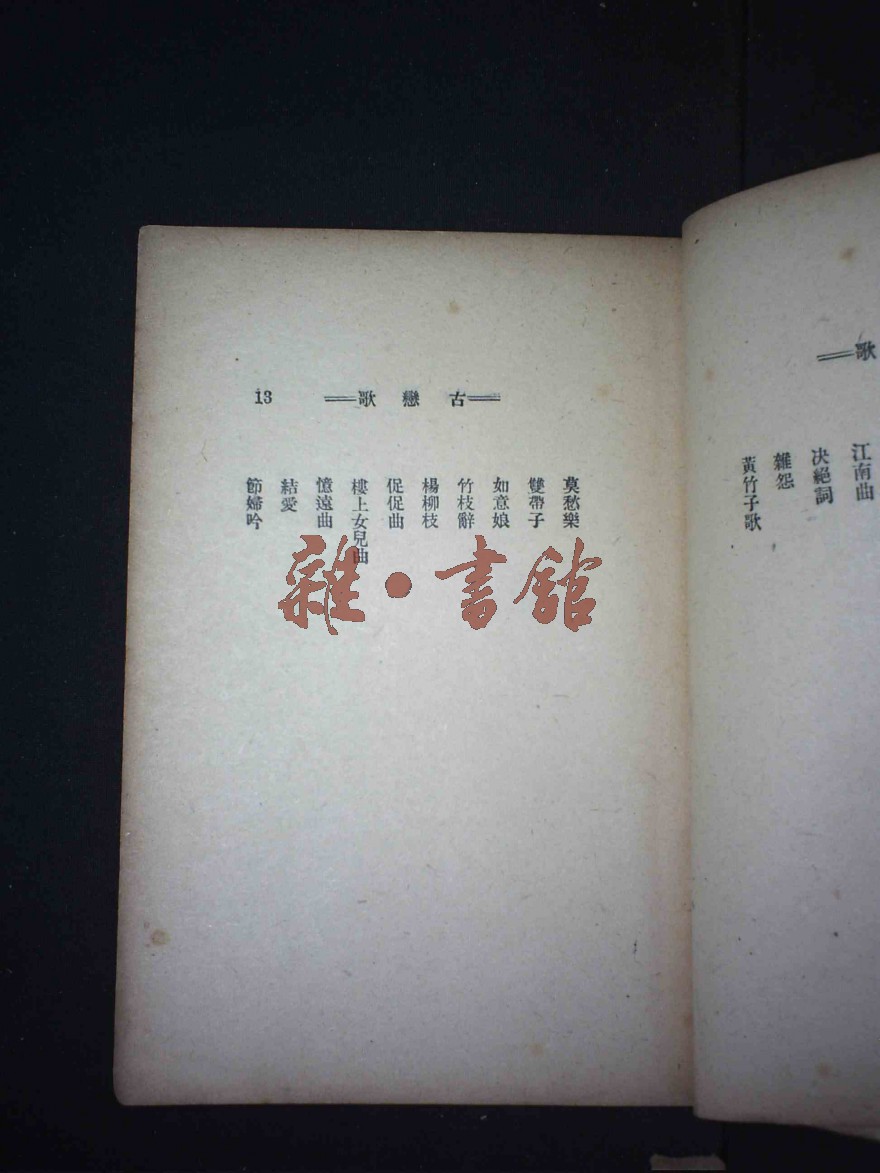 歌
江南曲
决絕詞
雜怨
黃竹子歌
古戀歌
13
莫愁樂
雙帶子
如意娘
竹枝辭
楊柳枝
促促曲
樓上女兒曲
憶遠曲
結愛
節婦吟
雜·書館